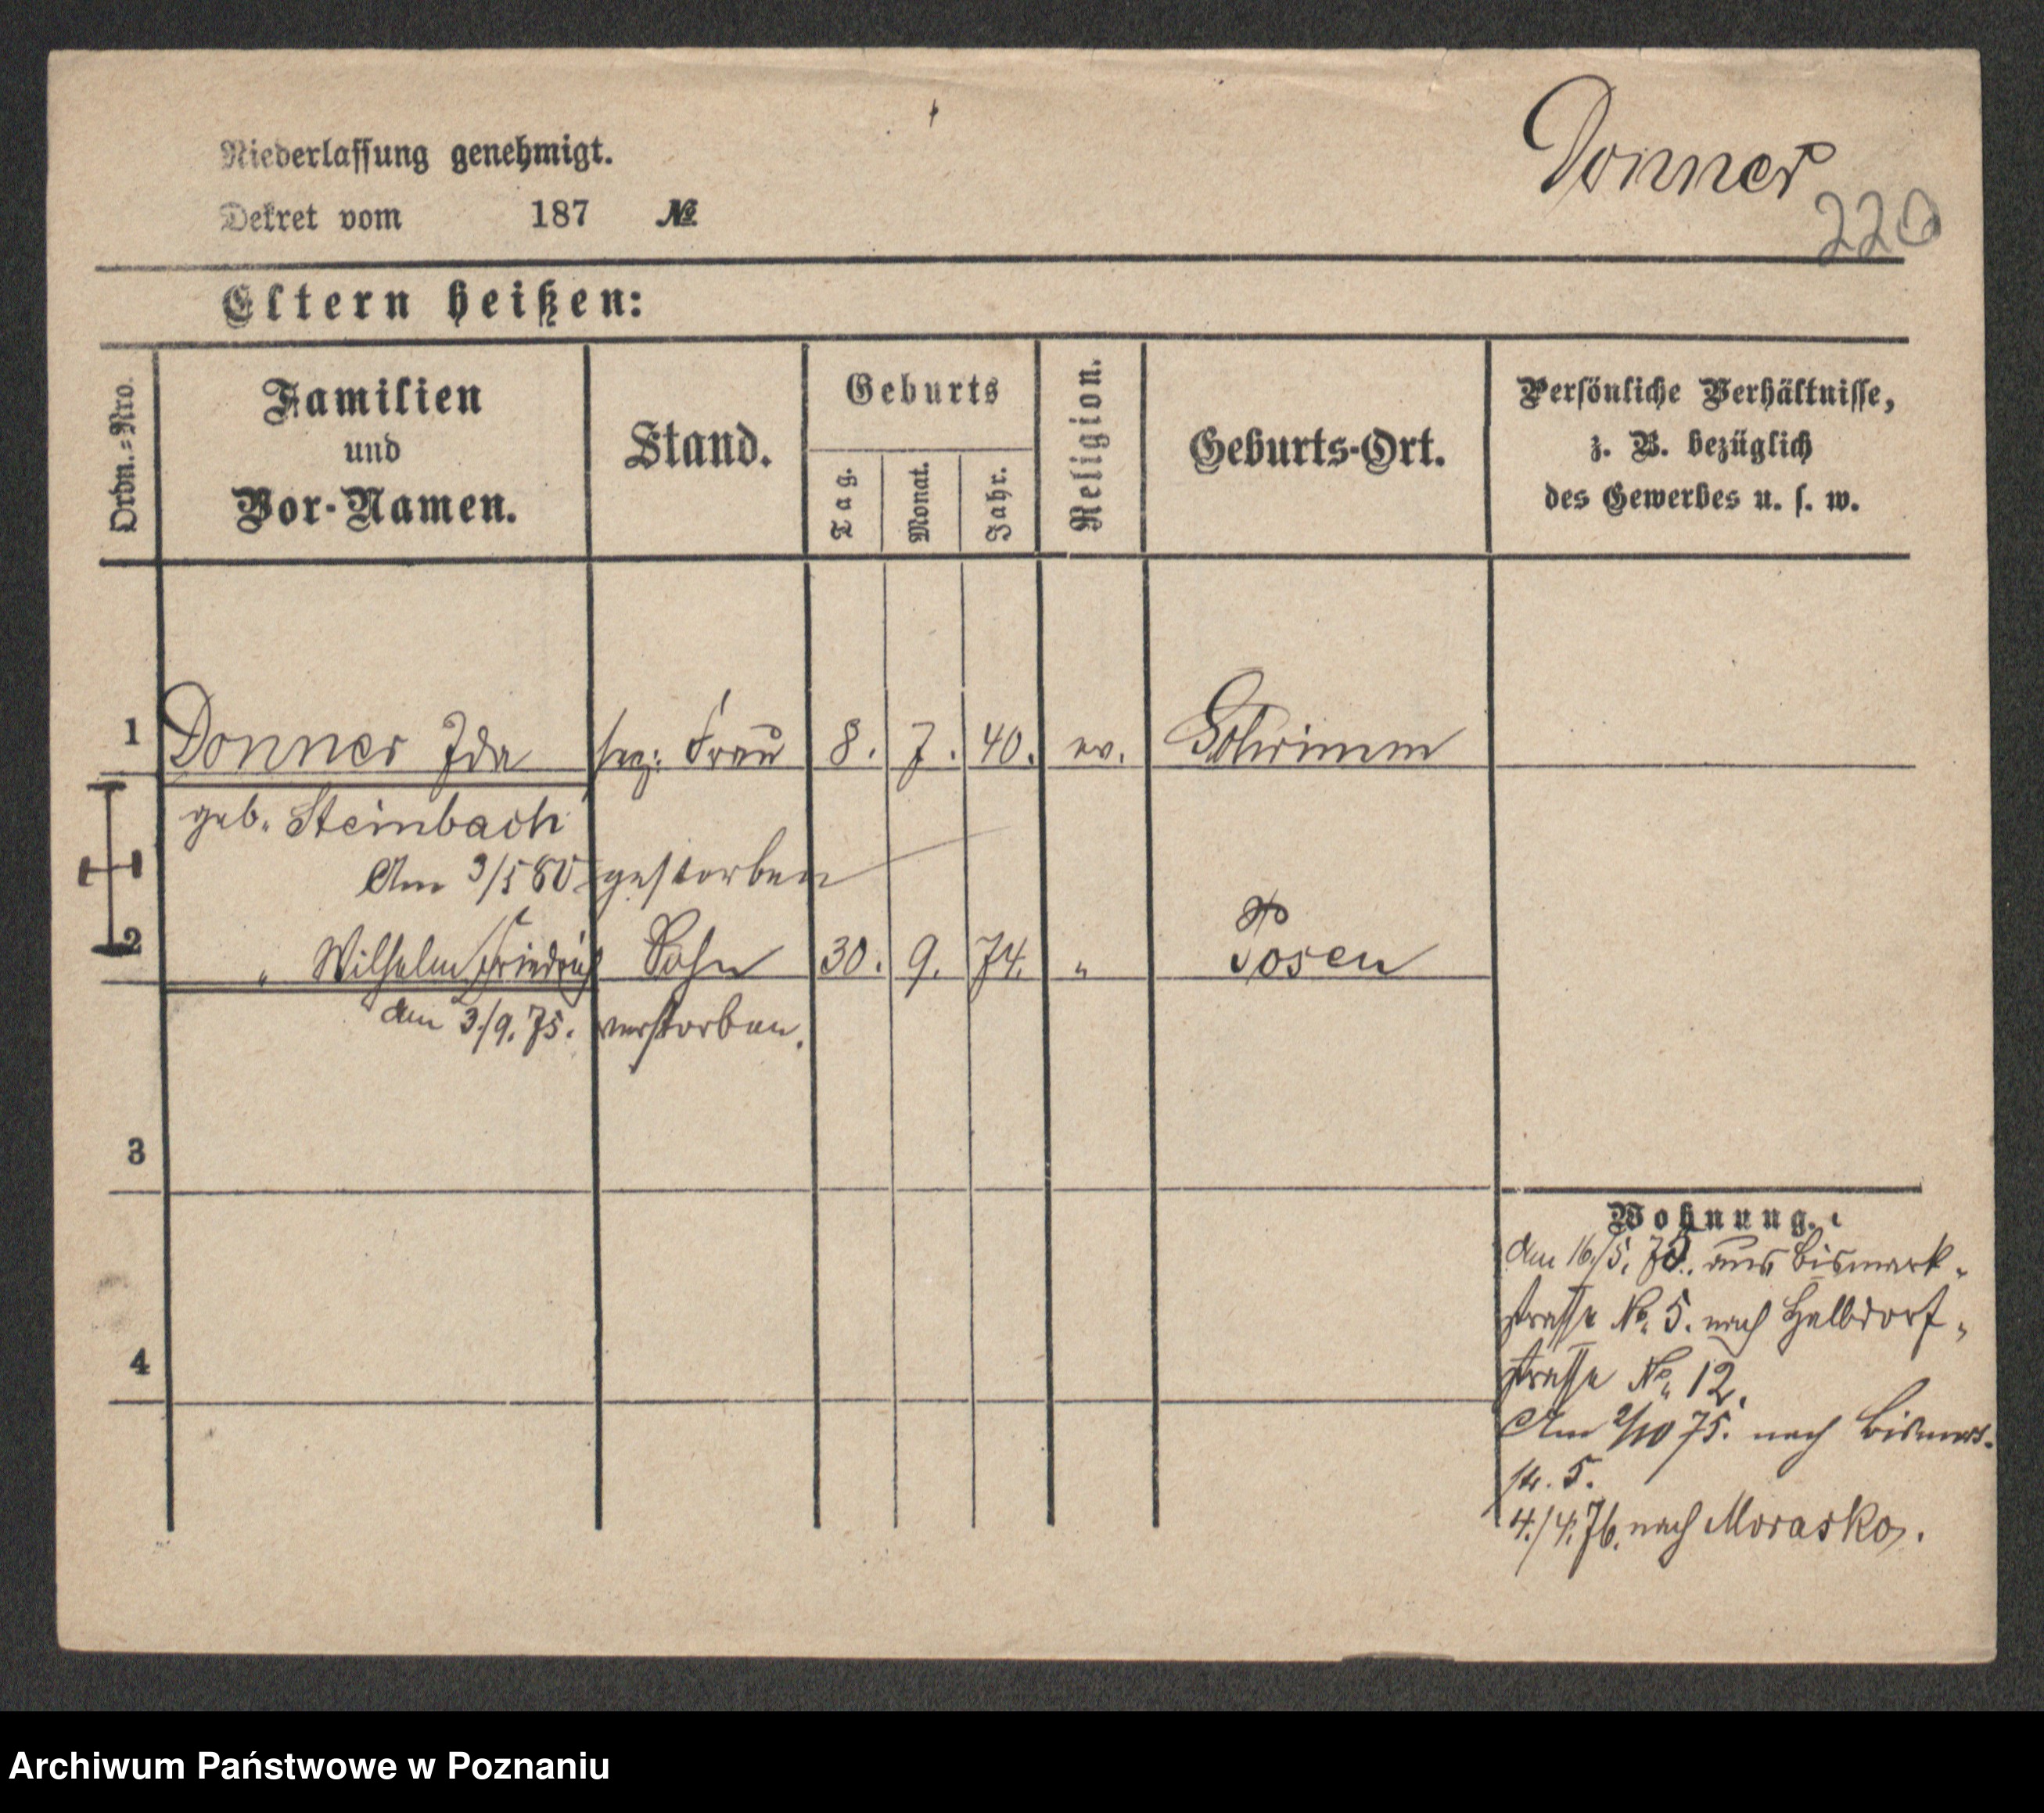 Donner
220
Niederlassung genehmigt.
Dekret vom 187 №
Eltern heißen:
Ordn.=Nro.
Familien und Vor-Namen.
Stand.
Geburts
Tag.
Monat.
Jahr.
Religion.
Geburts-Ort.
Persönliche Verhältnisse,
z. B. bezüglich
des Gewerbes u. s. w.
1 Donner Ida Frau 8. 7. 40. ev. Schrimm
geb. Steinbach
Am 3/5 80 gestorben
2 " Wilhelm Friedrich Sohn 30. 9. 74. " Posen
am 3./9. 75. verstorben.
3
4
Wohnung.
Am 16./5. 75. aus Bismark-
strasse No. 5. nach Halbdorf-
strasse No. 12.
Am 2/10 75. nach Bismar-
str. 5.
4./4. 76. nach Morasko.
Archiwum Państwowe w Poznaniu